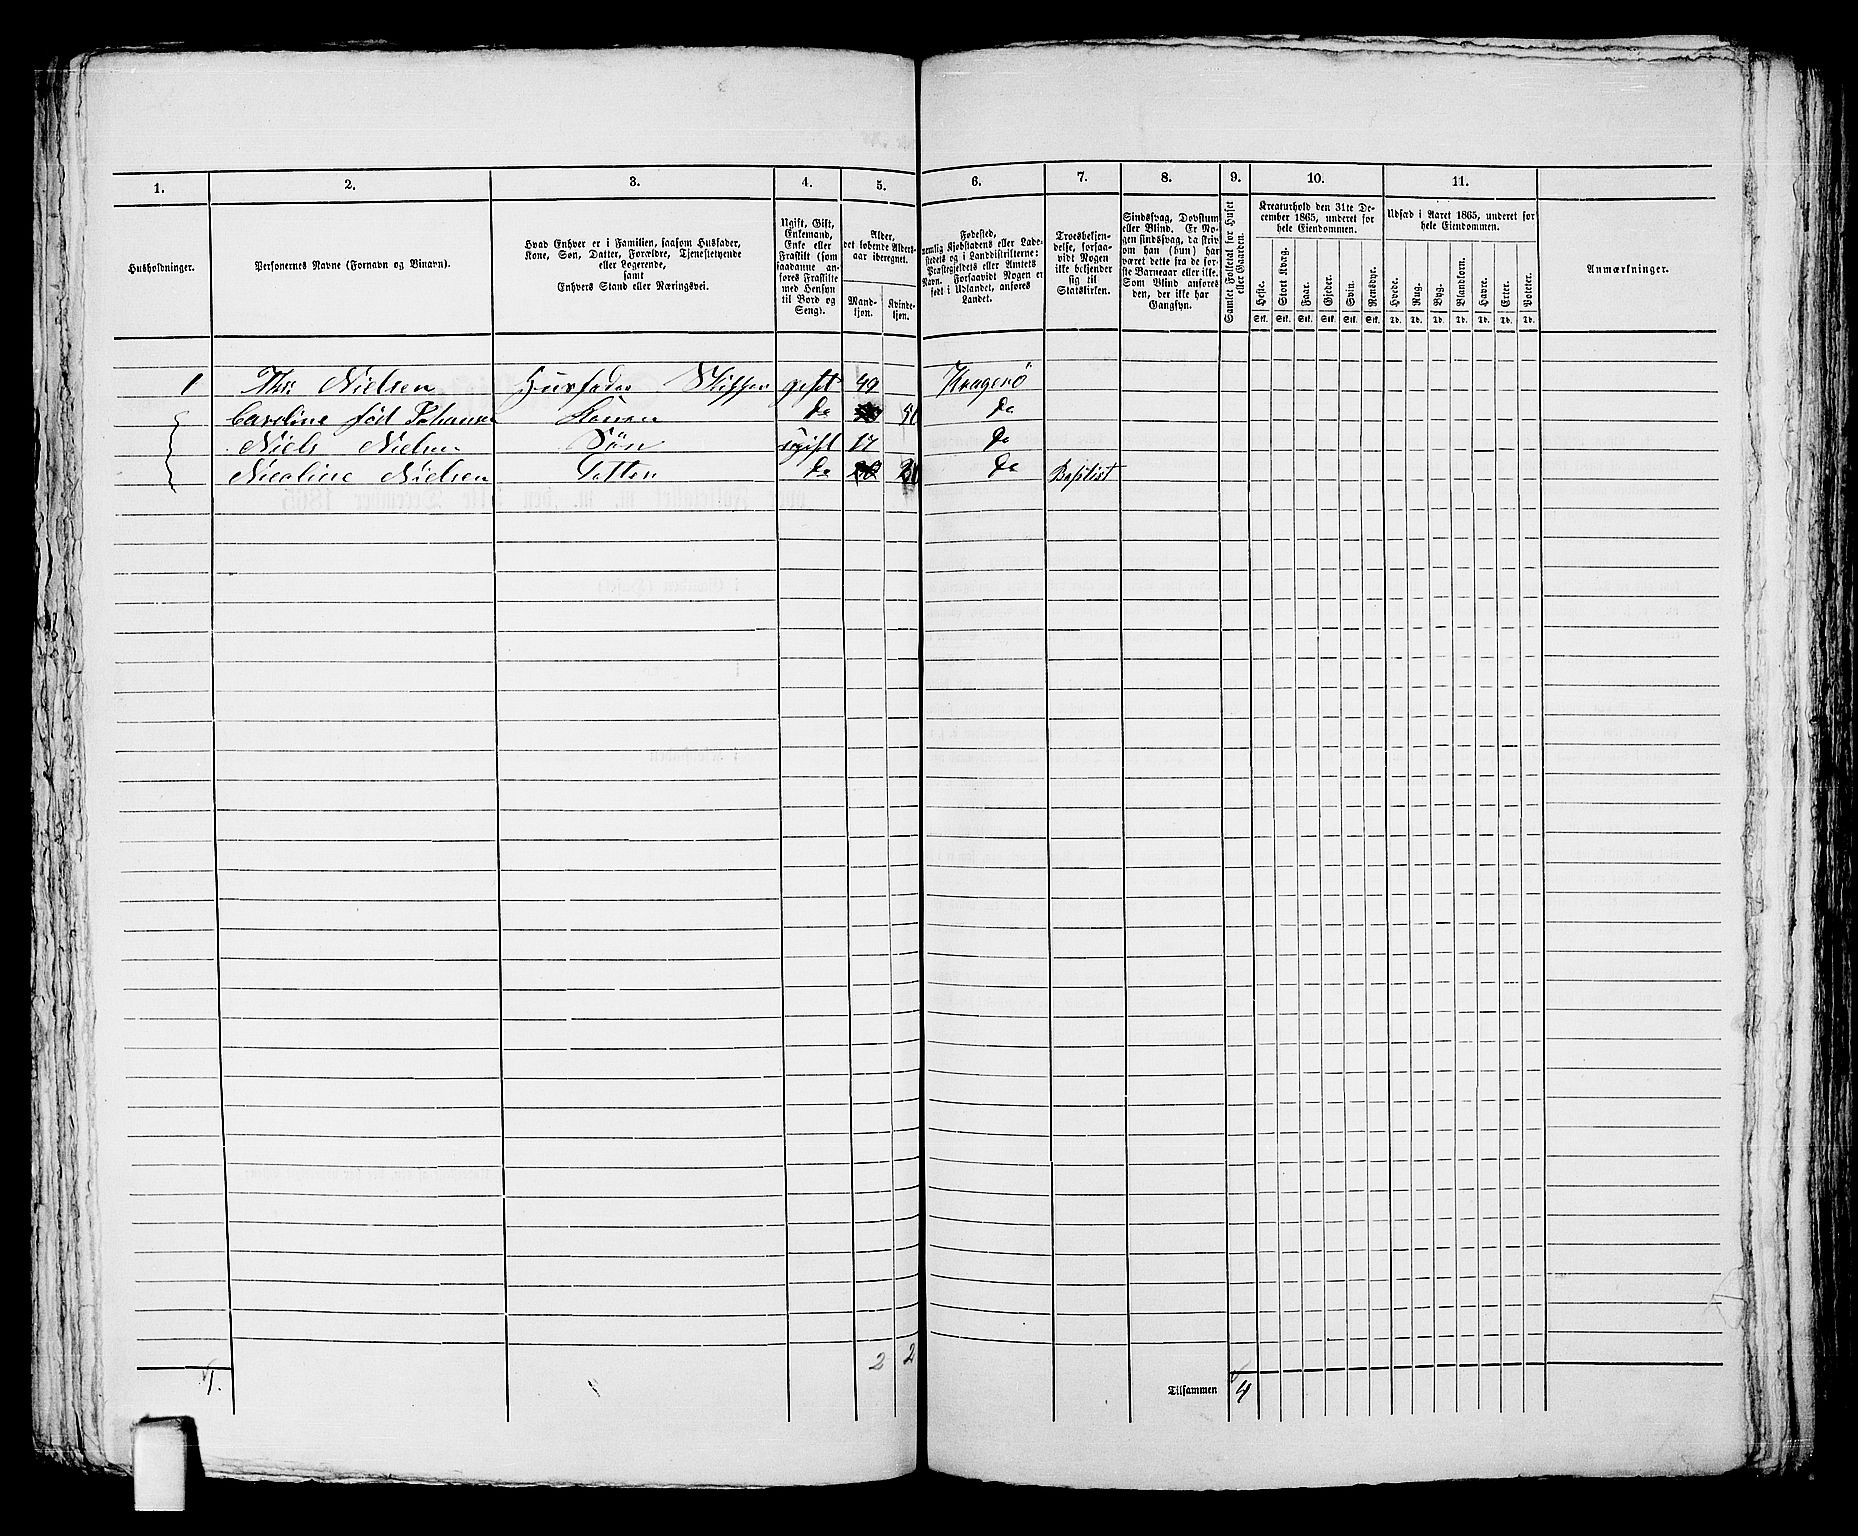 1. 2. 3. 4. 5. 6. 7. 8. 9. 10. 11.
Husholdninger.
Personernes Navne (Fornavn og Binavn).
Hvad Enhver er i Familien, saasom Husfader,
Kone, Søn, Datter, Forældre, Tjenestetyende
eller Logerende,
samt
Enhvers Stand eller Næringsvei.
Ugift, Gift,
Enkemand,
Enke eller
Fraskilt (som
saadanne an-
føres Fraskilte
med Hensyn
til Bord og
Seng).
Alder,
det løbende Alders-
aar iberegnet.
Mand-
kjøn.
Kvinde-
kjøn.
Fødested,
nemlig Kjøbstadens eller Lade-
stedets og i Landdistrikterne:
Præstegjeldets eller Amtets
Navn. Forsaavidt Nogen er
født i Udlandet, anføres
Landet.
Troesbekjen-
delse, forsaa-
vidt Nogen
ikke bekjender
sig til
Statskirken.
Sindssvag, Døvstum
eller Blind. Er No-
gen sindssvag, da skriv
om han (hun) har
været dette fra de før-
ste Barneaar eller ikke.
Som Blind anføres
den, der ikke har
Gangsyn.
Samlet Folketal for Huset
eller Gaarden.
Kreaturhold den 31te De-
cember 1865, underet for
hele Eiendommen.
Heste. Stort Kvæg. Faar. Gjeder. Svin. Rensdyr.
Stk. Stk. Stk. Stk. Stk. Stk.
Udsæd i Aaret 1865, underet for
hele Eiendommen.
Hvede. Rug. Byg. Blandkorn. Havre. Erter. Poteter.
Td. Td. Td. Td. Td. Td. Td.
Anmærkninger.
1 Nielsen Husfader Skipper gift 49 Kragerø
Caroline fød Johansen Konen Do Do
Niels Nielsen Søn ugift 17 Do
Nicoline Nielsen Datter Do Do Baptist
1. 2 2 Tilsammen 4